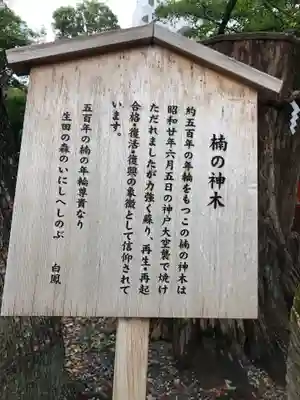 楠の神木
約五百年の年輪をもつこの楠の神木は
昭和廿年六月五日の神戸大空襲で焼け
ただれましたが力強く蘇り、再生・再起
合格・復活・復興の象徴として信仰されて
います。
五百年の楠の年輪尊貴なり
生田の森のいにしへしのぶ
白鳳